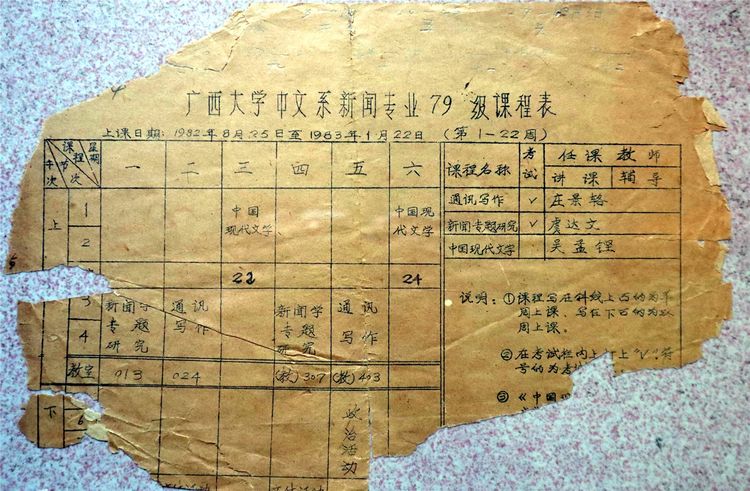 广西大学中文系新闻专业79级课程表
上课日期：1982年8月25日至1983年1月22日（第1-22周）
星期 课程 节次 午次 一 二 三 四 五 六
上 1 中国现代文学 中国现代文学
2
22 24
3 新闻学专题研究 通讯写作 新闻学专题研究 通讯写作
4
教室 013 024 (教)307 (教)403
下 政治活动
6
课程名称 考试 任课教师
讲课 辅导
通讯写作 ✓ 庄景辂
新闻专题研究 ✓ 虞达文
中国现代文学 吴孟铿
说明：①课程写在斜线上占的为单
周上课、写在下占的为双
周上课。
②在考试栏内上打上“V”符
号的为考
③《中国现